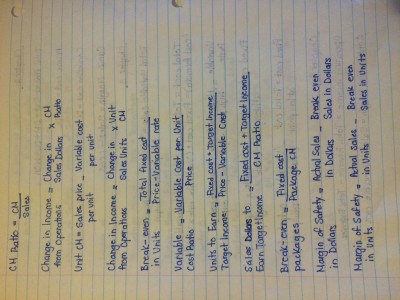 CM Ratio = CM
Sales
Change in Income = Change in x CM
from Operations Sales Dollars Ratio
Unit CM = Sales price - Variable cost
per unit per unit
Change in income = Change in x Unit
from Operations Sales Units CM
Break-even = Total Fixed cost
in Units Price-Variable rate
Variable = Variable Cost per Unit
Cost Ratio Price
Units to Earn = Fixed cost + Target Income
Target Income Price - Variable Cost
Sales Dollars to = Fixed cost + Target Income
Earn Target Income CM Ratio
Break-even = Fixed cost
packages Package CM
Margin of Safety = Actual Sales - Break even
in Dollars in Dollars Sales in Dollars
Margin of Safety = Actual Sales - Break even
in Units in Units Sales in Units